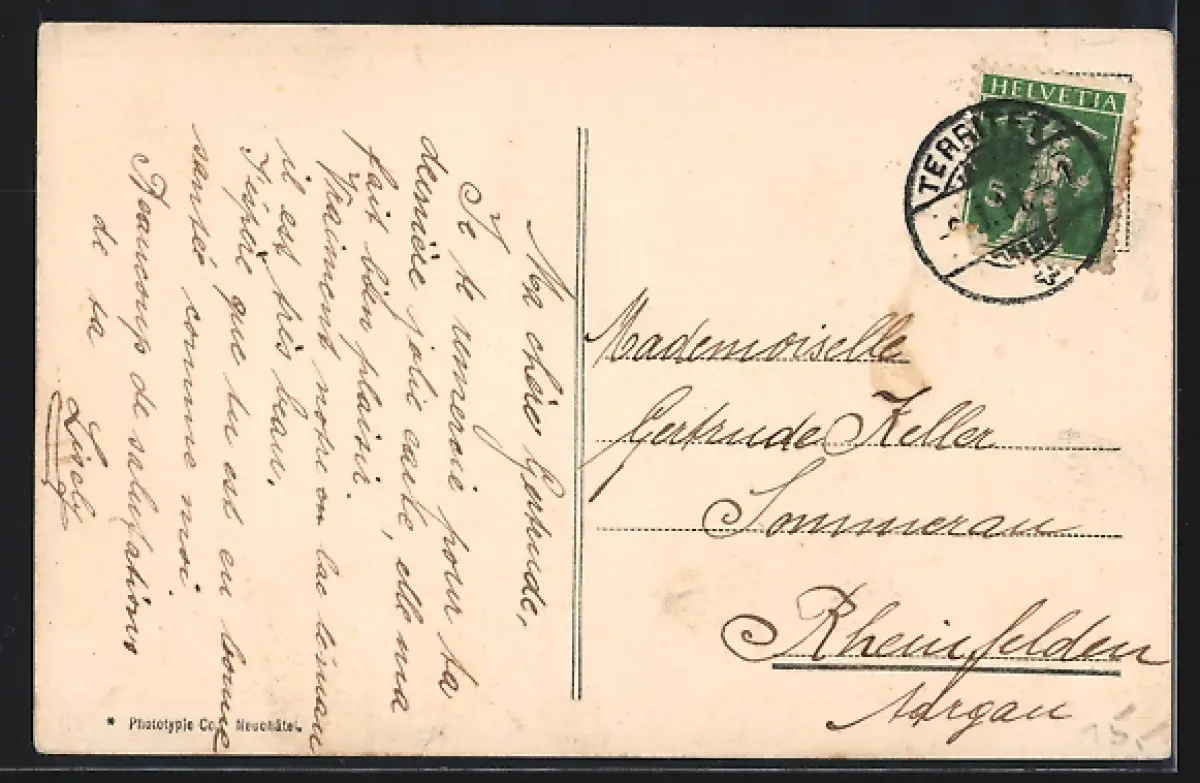 Ma chère Gertrude,
Je te remercie pour ta
dernière jolie carte, elle m'a
fait bien plaisir.
Vraiment notre lac léman
il est très beau.
J'espère que tu est en bonne
santeé comme moi.
Beaucoup de salutations
de ta
Lisely
* Phototypie Co. Neuchâtel.
HELVETIA
5
TERRITET
Mademoiselle
Gertrude Keller
Sommerau
Rheinfelden
Aargau
15.-